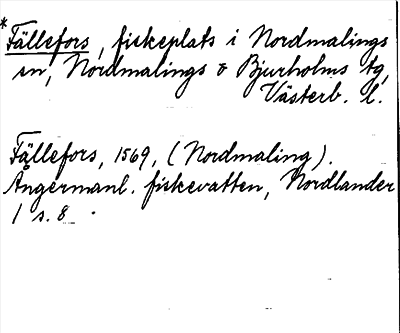 *Fällefors, fiskeplats i Nordmalings
sn, Nordmalings o Bjurholms tg,
Västerb. l.
Fällefors, 1569, (Nordmaling).
Ångermanl. fiskevatten, Nordlander
1 s. 8.